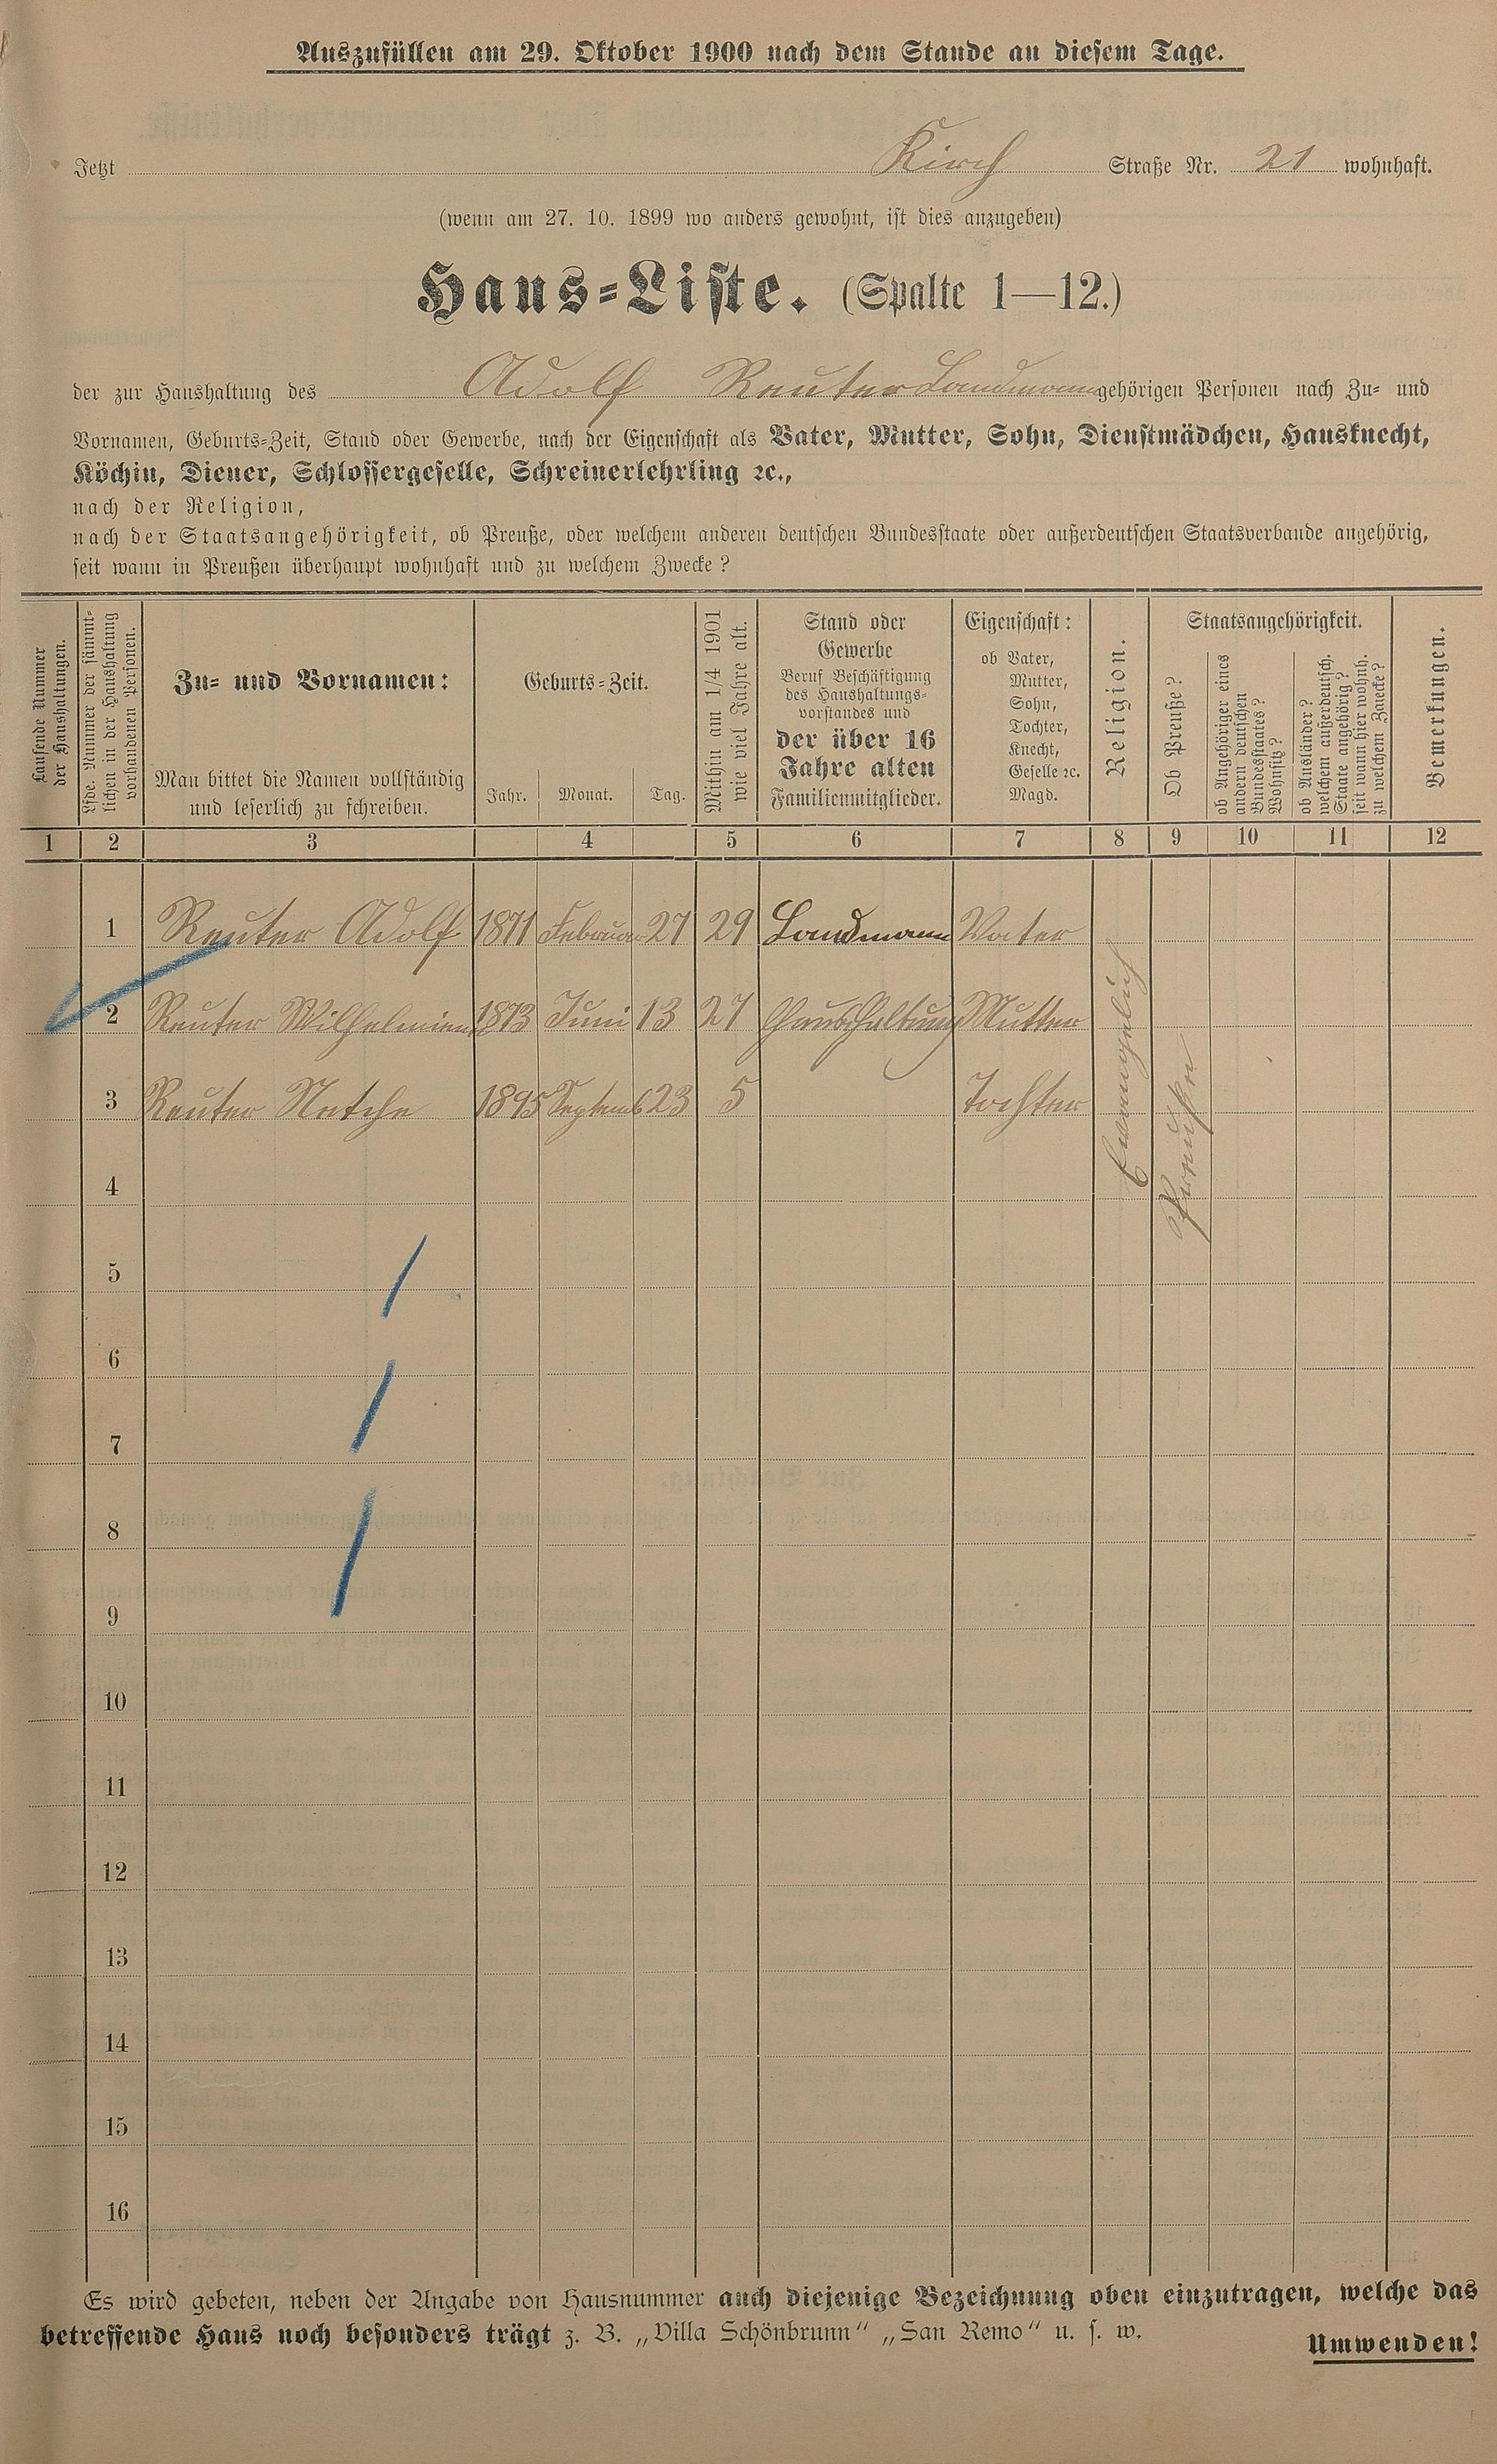 Auszufüllen am 29. Oktober 1900 nach dem Stande an diesem Tage.
Jetzt Kirch Straße Nr. 21 wohnhaft.
(wenn am 27. 10. 1899 wo anders gewohnt, ist dies anzugeben)
Haus=Liste. (Spalte 1—12.)
der zur Haushaltung des Adolf Reuter Landmann gehörigen Personen nach Zu= und
Vornamen, Geburts=Zeit, Stand oder Gewerbe, nach der Eigenschaft als Vater, Mutter, Sohn, Dienstmädchen, Hausknecht,
Köchin, Diener, Schlossergeselle, Schreinerlehrling ꝛc.,
nach der Religion,
nach der Staatsangehörigkeit, ob Preuße, oder welchem anderen deutschen Bundesstaate oder außerdeutschen Staatsverbande angehörig,
seit wann in Preußen überhaupt wohnhaft und zu welchem Zwecke?
Laufende Nummer
der Haushaltungen.
Lfde. Nummer der sämmt-
lichen in der Haushaltung
vorhandenen Personen.
Zu= und Vornamen:
Man bittet die Namen vollständig
und leserlich zu schreiben.
Geburts=Zeit.
Jahr. Monat. Tag.
Mithin am 1/4 1901
wie viel Jahre alt.
Stand oder
Gewerbe
Beruf Beschäftigung
des Haushaltungs=
vorstandes und
der über 16
Jahre alten
Familienmitglieder.
Eigenschaft:
ob Vater,
Mutter,
Sohn,
Tochter,
Knecht,
Geselle ꝛc.
Magd.
Religion.
Staatsangehörigkeit.
Ob Preuße?
ob Angehöriger eines
andern deutschen
Bundesstaates?
Wohnsitz?
ob Ausländer?
welchem außerdeutsch.
Staate angehörig?
seit wann hier wohnh.
zu welchem Zwecke?
Bemerkungen.
1 2 3 4 5 6 7 8 9 10 11 12
1 Reuter Adolf 1871 Februar 27 29 Landmann Vater
2 Reuter Wilhelmien 1873 Juni 13 27 Haushaltung Mutter
3 Reuter Netche 1895 Septemb 23 5 Tochter
Evangelisch
Preuße
4
5
6
7
8
9
10
11
12
13
14
15
16
Es wird gebeten, neben der Angabe von Hausnummer auch diejenige Bezeichnung oben einzutragen, welche das
betreffende Haus noch besonders trägt z. B. „Villa Schönbrunn“ „San Remo“ u. s. w.
Umwenden!